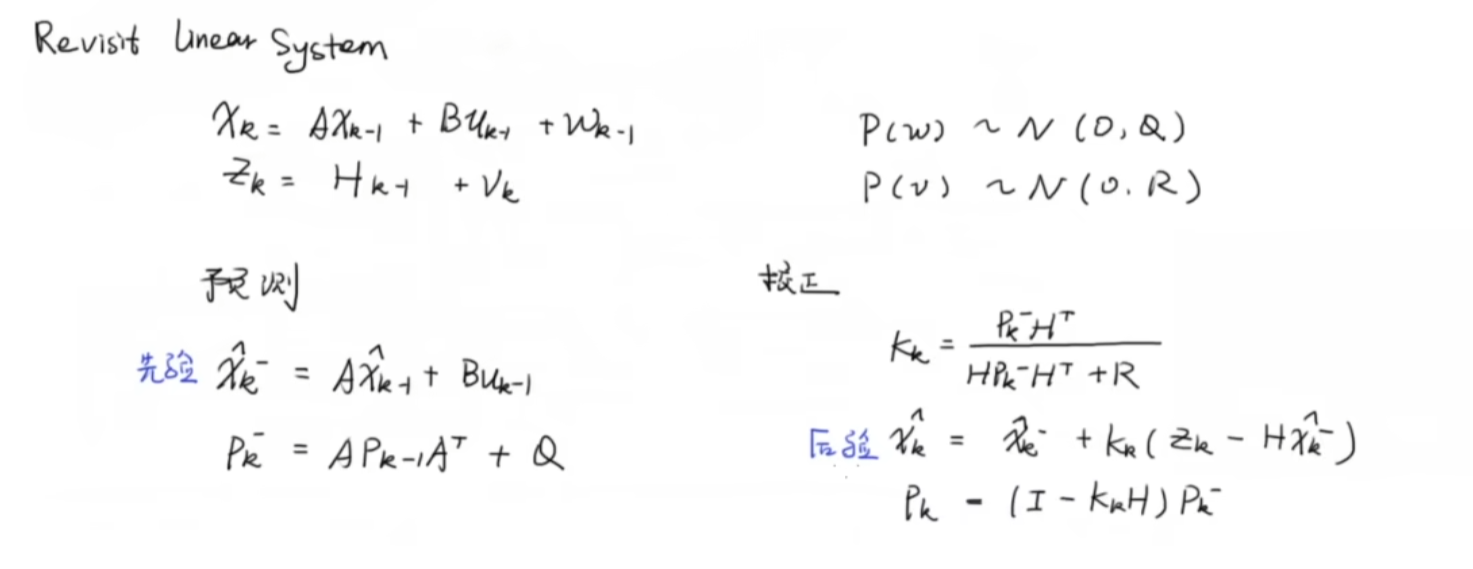 Revisit Linear System
X_k = AX_{k-1} + BU_{k-1} + W_{k-1}
P(w) ~ N(0, Q)
Z_k = H_{k-1} + V_k
P(v) ~ N(0. R)
预测
校正
先验 x̂_k^- = Ax̂_{k-1} + Bu_{k-1}
P_k^- = AP_{k-1}A^T + Q
K_k = P_k^-H^T / HP_k^-H^T + R
后验 x̂_k = x̂_k^- + K_k(Z_k - Hx̂_k^-)
P_k = (I - K_kH)P_k^-